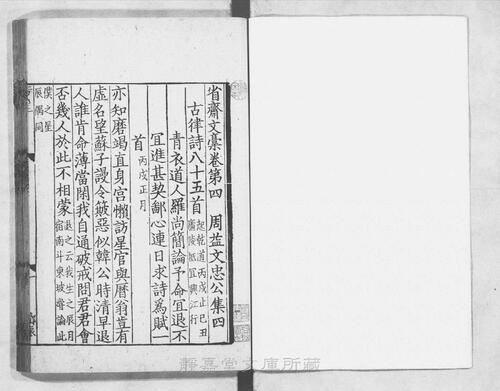 省齋文稾卷第四　周益文忠公集四
古律詩八十五首 起乾道丙戌止己丑
青衣道人羅尚簡論予命宜退不
宜進甚契鄙心連日求詩為賦一
首 丙戌正月
亦知磨竭直身宮懶訪星官與曆翁豈有
虛名望蘇子謾令簸惡似韓公時清早退
人誰肯命薄當閑我自通破戒問君君會
否幾人於此不相蒙 退之云我生之辰月宿南斗東坡嘗論此
僕之星辰偶同
靜嘉堂文庫所藏